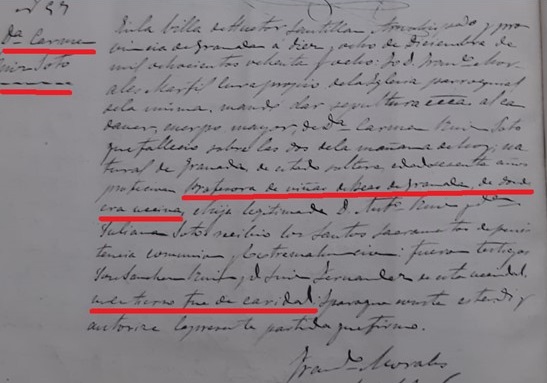 Dª Carmen
Ruiz Soto
En la billa de Huetor Santillan Arzobispado y pro
vincia de Granada a diez y ocho de Diciembre de
mil ochocientos ochenta y ocho: Yo D. Franco Mor
ales Marfil Cura propio de la Iglesia parroquial
de la misma, mandé dar sepultura ecca al ca
daver, cuerpo mayor, de Dª Carmen Ruiz Soto
que fallecio sobre las dos de la mañana de hoy; na
tural de Granada de estado soltera, edad sesenta años
profesion Profesora de niñas de Beas de Granada, de dond
era vecina, é hija legitima de D. Antº Ruiz y Dª
Juliana Soto: recibio los Santos Sacramentos de peni
tencia comunion y Extremauncion: fueron testigos
José Sanchez Ruiz y D. Luis Fernandez de esta vecindad.
su entierro fue de caridad. Y para que conste estendí y
autorice la presente partida que firmo.
Franco Morales